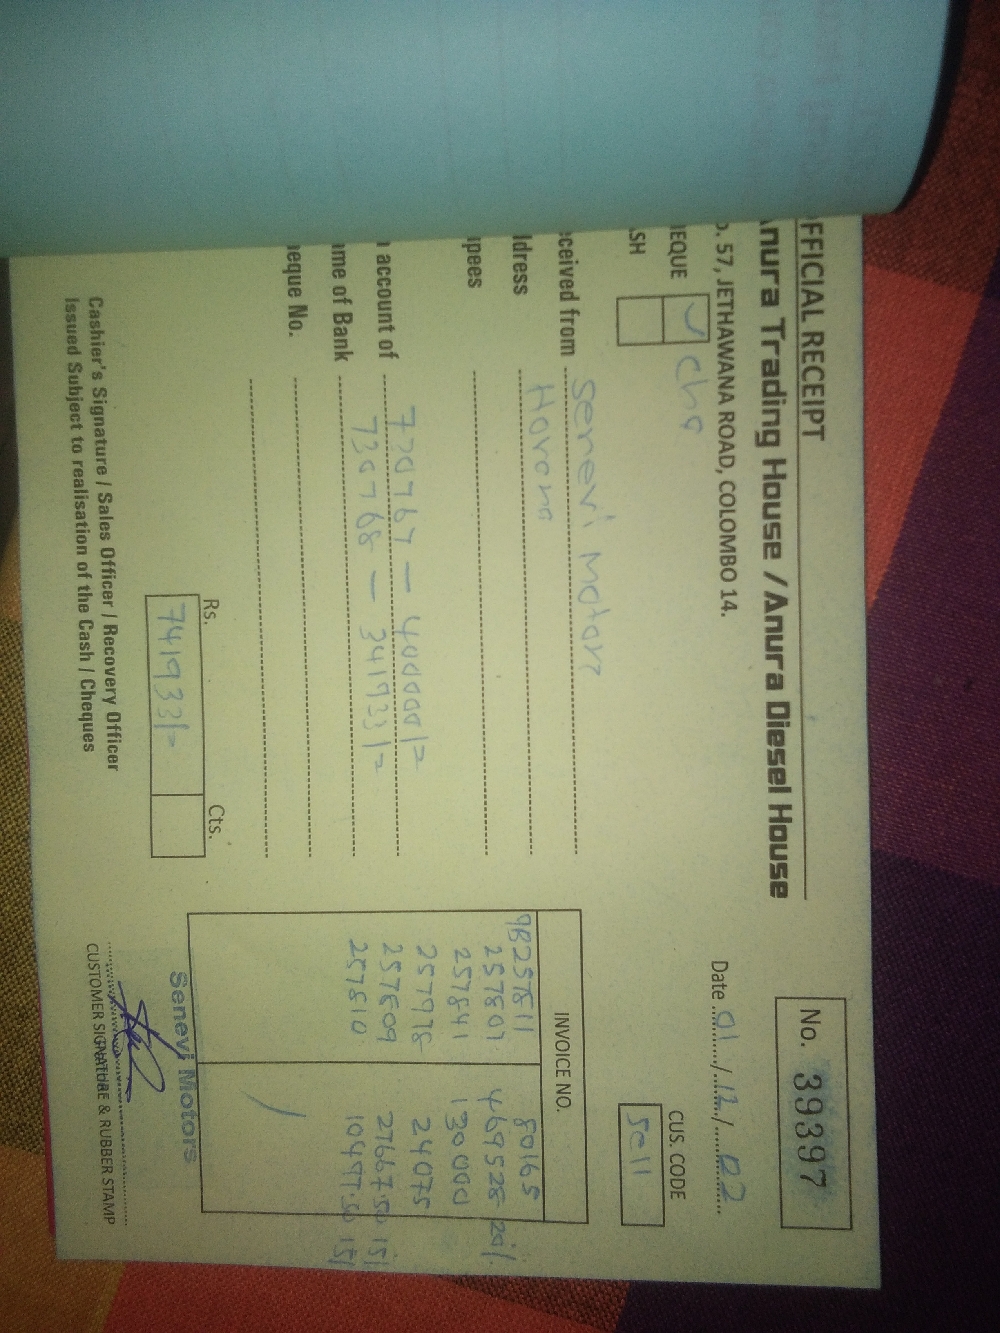 OFFICIAL RECEIPT
Anura Trading House / Anura Diesel House
o. 57, JETHAWANA ROAD, COLOMBO 14.
No. 39397
Date 01 / 12 / 02
EQUE ✓ Chq
SH
CUS. CODE
Se11
eceived from Senevi Motors
ldress Horona
upees
n account of 730767 — 400000/=
730768 — 341933/=
ame of Bank
eque No.
Rs. Cts.
741933/=
INVOICE NO.
9B257811 80165
257807 469528 20%
257841 130000
257978 24075
257809 27667.50 15%
257810 10497.50 15%
Cashier's Signature / Sales Officer / Recovery Officer
Issued Subject to realisation of the Cash / Cheques
Senevi Motors
CUSTOMER SIGNATURE & RUBBER STAMP